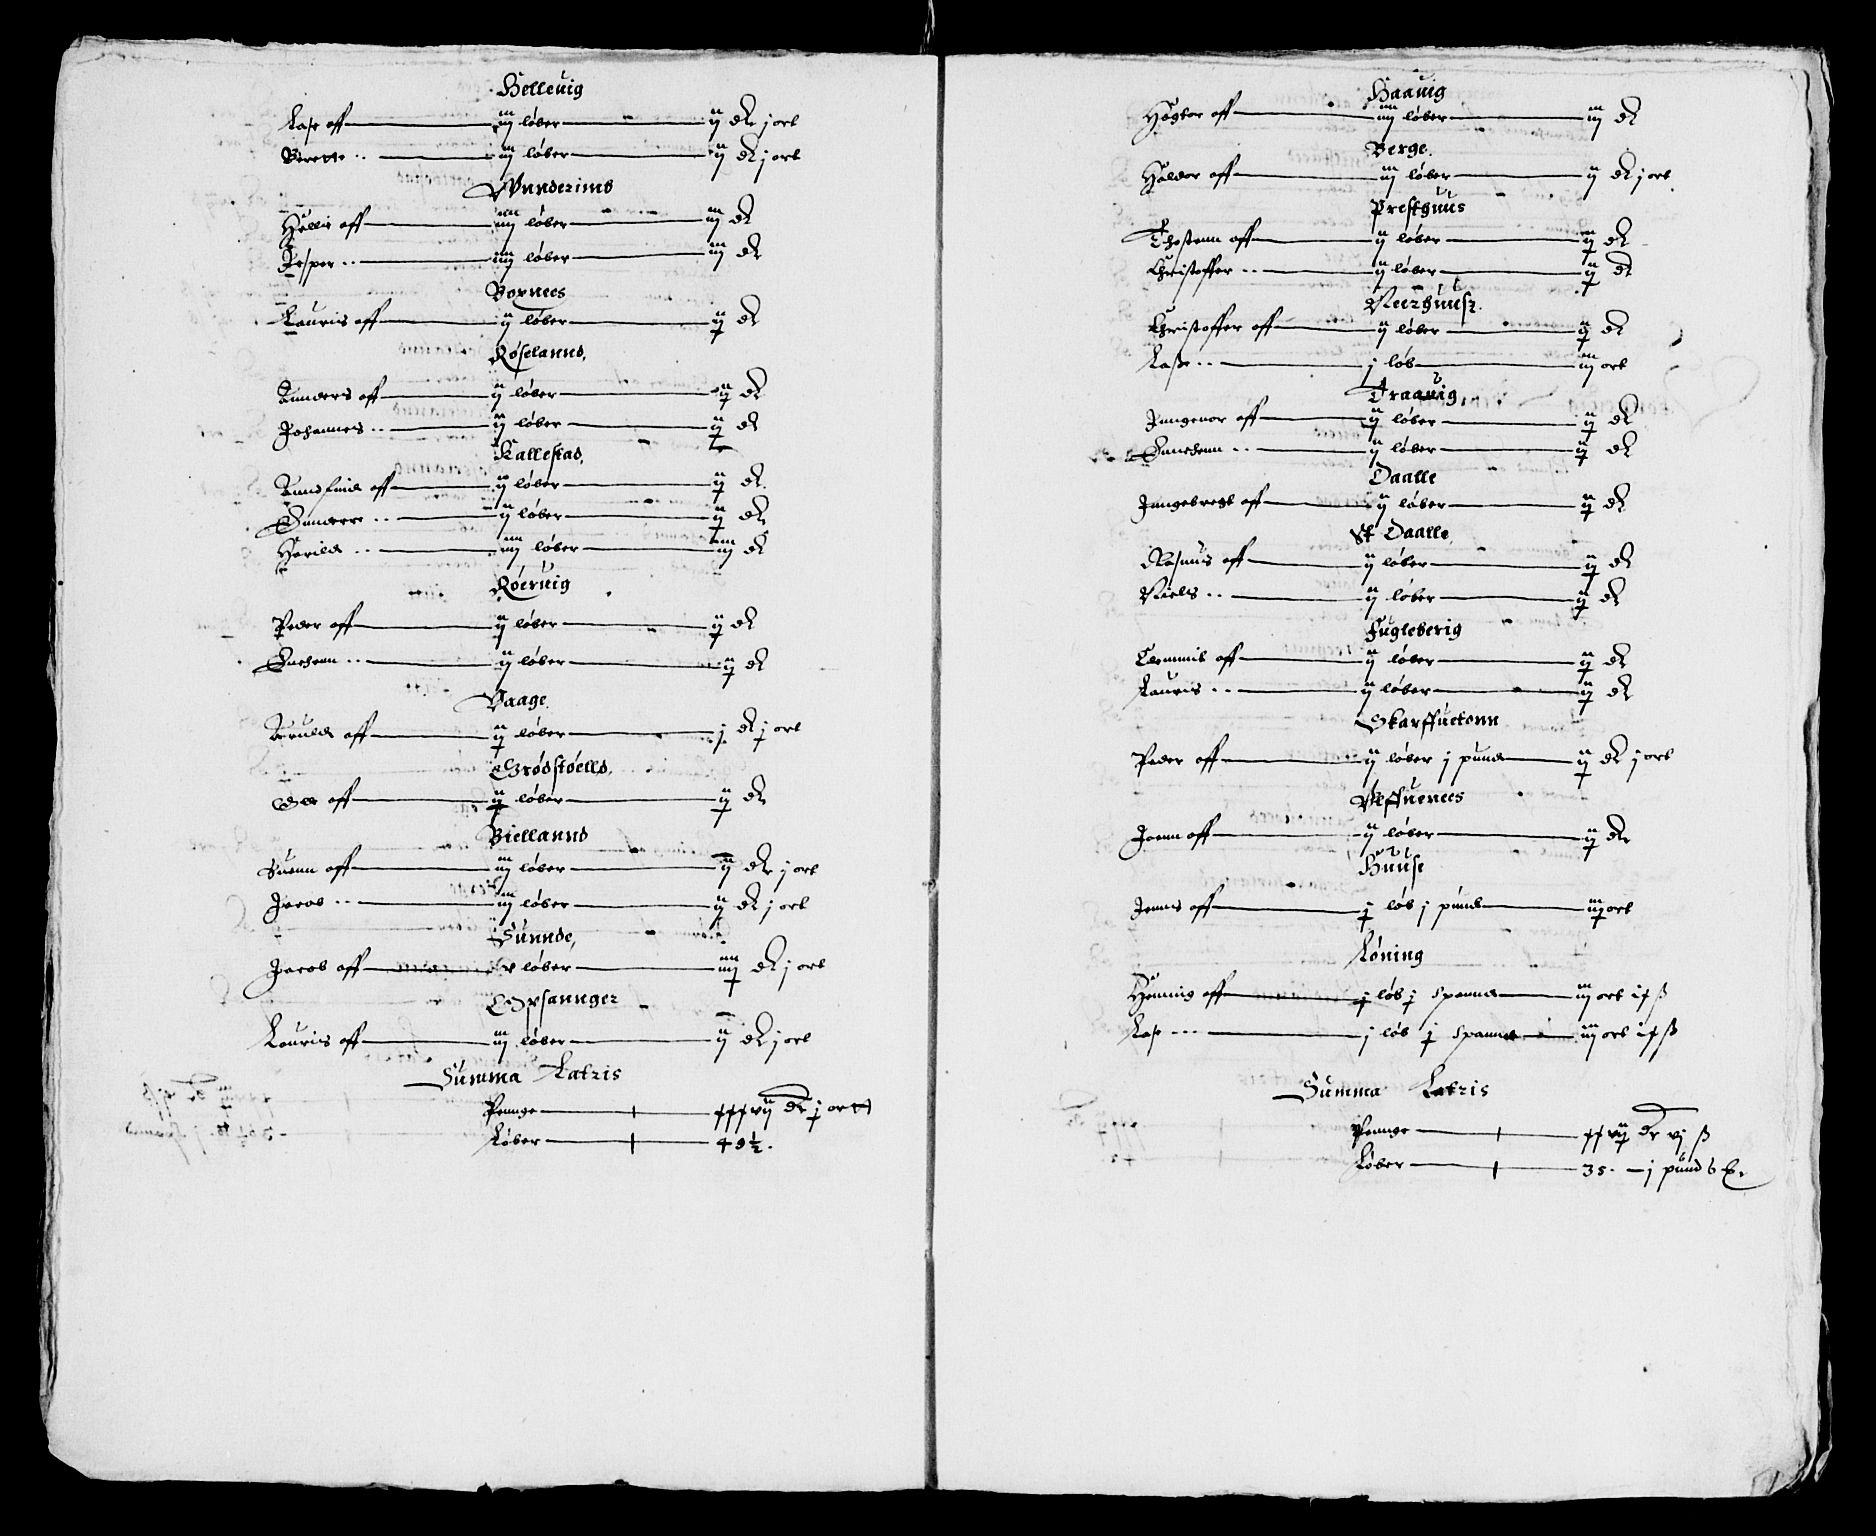 Helleuig
Lasse off iij løber ij dr j ort
Berette iij løber ij dr j ort
Wnnderims
Hellie off iiij løber iij dr
Jesper iiij løber iij dr
Boxnees
Lauris off ij løber ij dr
Røselannd
Annders off ij løber ij dr
Johannes ij løber ij dr
Kallestad
Anndfind off ij løber ij dr
ij løber ij dr
Harild iiij løber iiij dr
Røeruig
Peder off ij løber ij dr
ij løber ij dr
Vaage
off ij løber j dr j ort
Grødstøelld
Ole off ij løber ij dr
Biellannd
Suenn off iij løber ij dr j ort
Jacob iij løber ij dr j ort
Sunnde
Jacob off v løber iiij dr j ort
Opsannger
Lauris off iij løber ij dr j ort
Summa Latris
Pennge xxxvij dr j ortt
Løber 49½
Haauig
off iiij løber iij dr
Berge
Haldor off iij løber ij dr j ort
Presthuus
Thostenn off ij løber ij dr
Christoffer ij løber ij dr
Neerhuus
Christoffer off ij løber ij dr
Lasse j løb iij ort
Traauig
off ij løber ij dr
ij løber ij dr
Daalle
Inngebregt off ij løber ij dr
St Daalle
Rasmus off ij løber ij dr
Niels ij løber ij dr
Fugleberig
off ij løber ij dr
Lauris ij løber ij dr
Skarffuetonn
Peder off ij løber j pund ij dr j ort
Alffuenees
Joenn off ij løber ij dr
Huuse
Jenns off j løb j pund iij ort
Løning
Henning off j løb j spannd iij ort
Lasse j løb j spannd iij ort
Summa Latris
Pennge xxvij dr vj ß
Løber 35 j pund